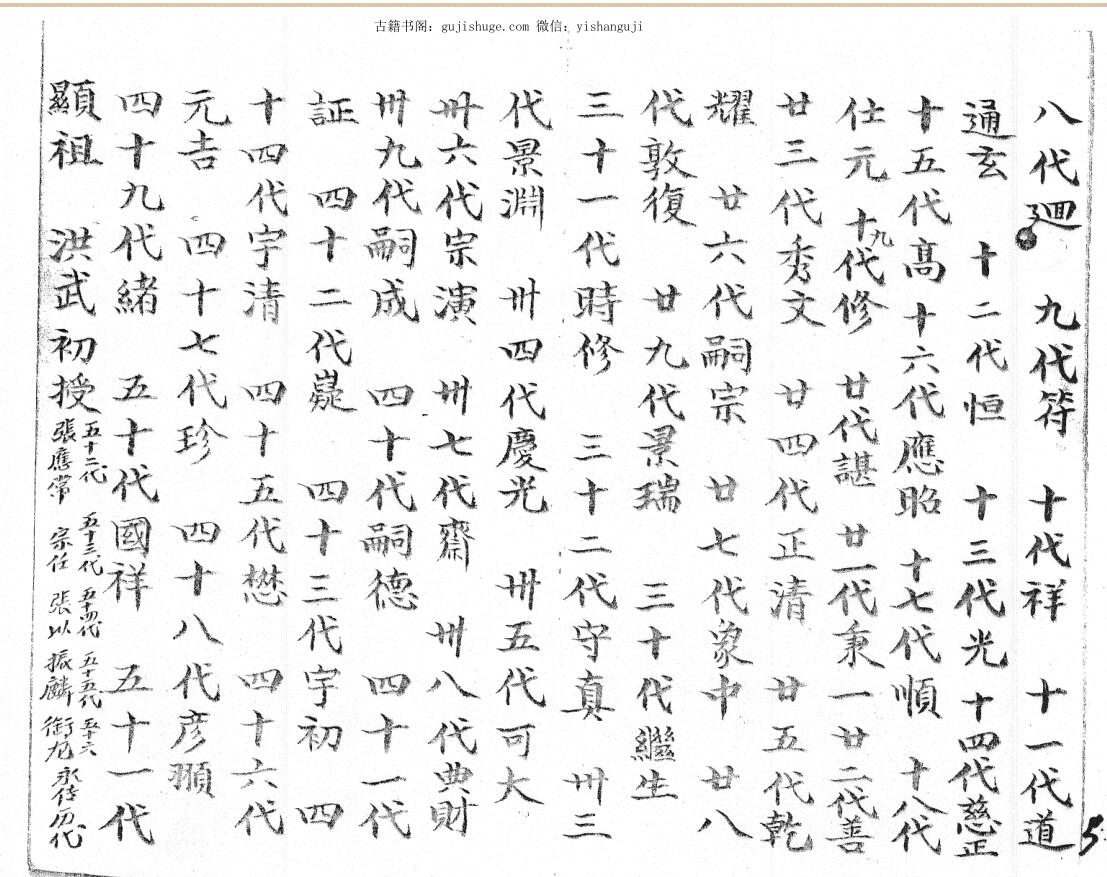 古籍书阁：gujishuge.com 微信：yishanguji
八代迴 九代符 十代祥 十一代道
通玄 十二代恒 十三代光 十四代慈正
十五代高 十六代應昭 十七代順 十八代
仕元 十九代修 廿代諶 廿一代秉一 廿二代善
廿三代秀文 廿四代正清 廿五代乾
耀 廿六代嗣宗 廿七代象中 廿八
代敦復 廿九代景瑞 三十代繼生
三十一代時修 三十二代守真 卅三
代景淵 卅四代慶光 卅五代可大
卅六代宗演 卅七代齋 卅八代典財
卅九代嗣成 四十代嗣德 四十一代
証 四十二代 四十三代宇初 四
十四代宇清 四十五代懋 四十六代
元吉 四十七代珍 四十八代彦頨
四十九代緒 五十代國祥 五十一代
顯祖 洪武初授 五十二代張應常 五十三代宗任 五十四代張以 五十五代振麟 五十六 永传历代
5